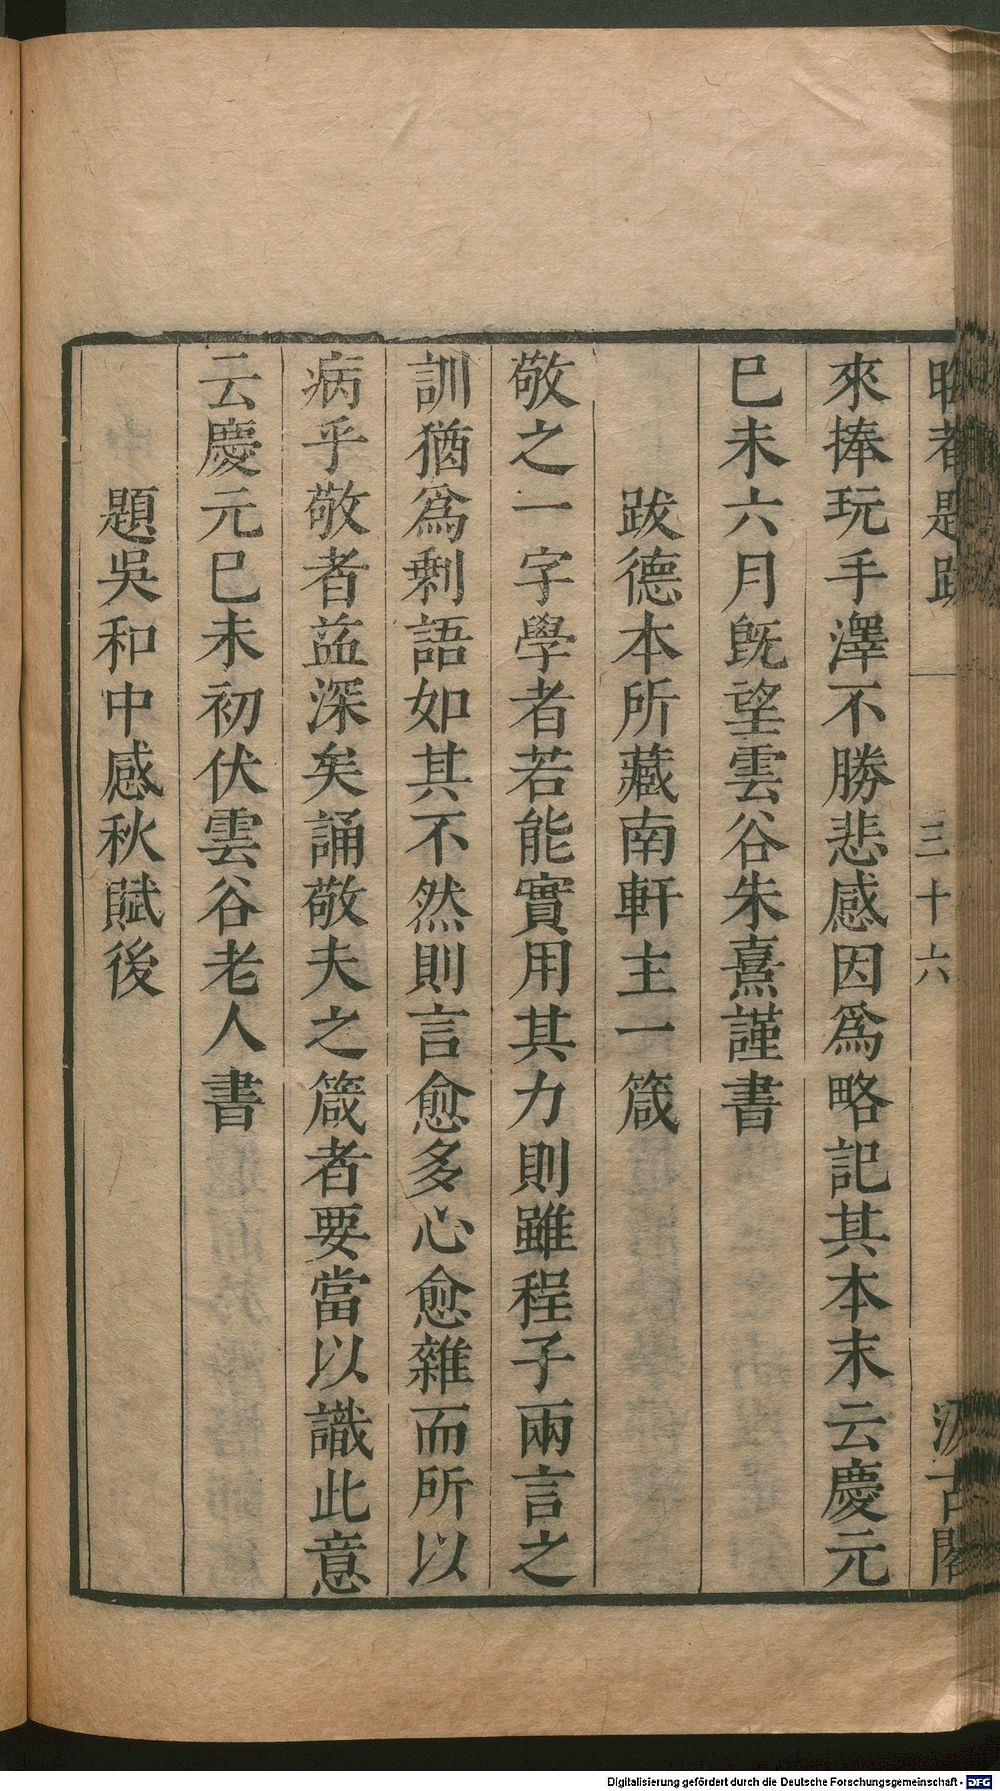 晦菴題跋 三十六 汲古閣
來捧玩手澤不勝悲感因爲略記其本末云慶元
巳未六月旣望雲谷朱熹謹書
跋德本所藏南軒主一箴
敬之一字學者若能實用其力則雖程子兩言之
訓猶爲剩語如其不然則言愈多心愈雜而所以
病乎敬者益深矣誦敬夫之箴者要當以識此意
云慶元巳未初伏雲谷老人書
題吳和中感秋賦後
Digitalisierung gefördert durch die Deutsche Forschungsgemeinschaft - DFG